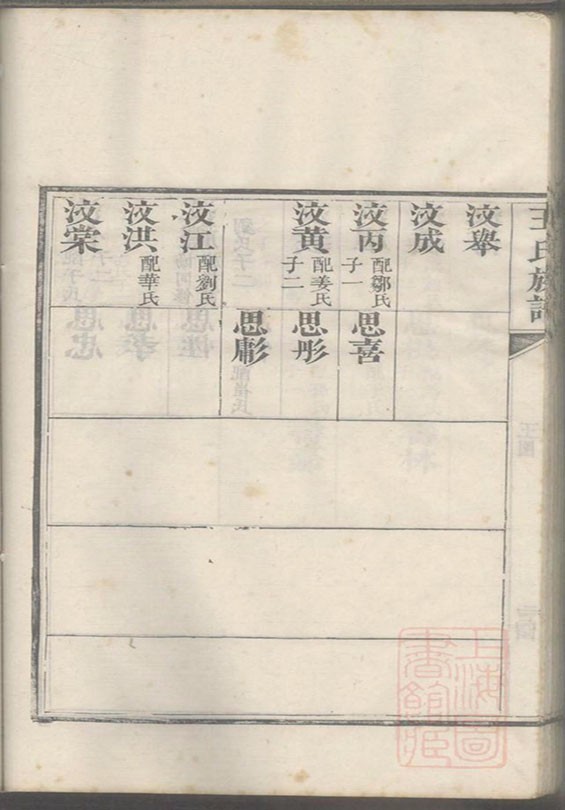 王氏族譜
汶舉
汶成
汶丙
配鄒氏
子一
思喜
汶黄
配姜氏
子二
思彤
思彪
汶江
配劉氏
汶洪
配華氏
汶棠
上海圖
書館藏